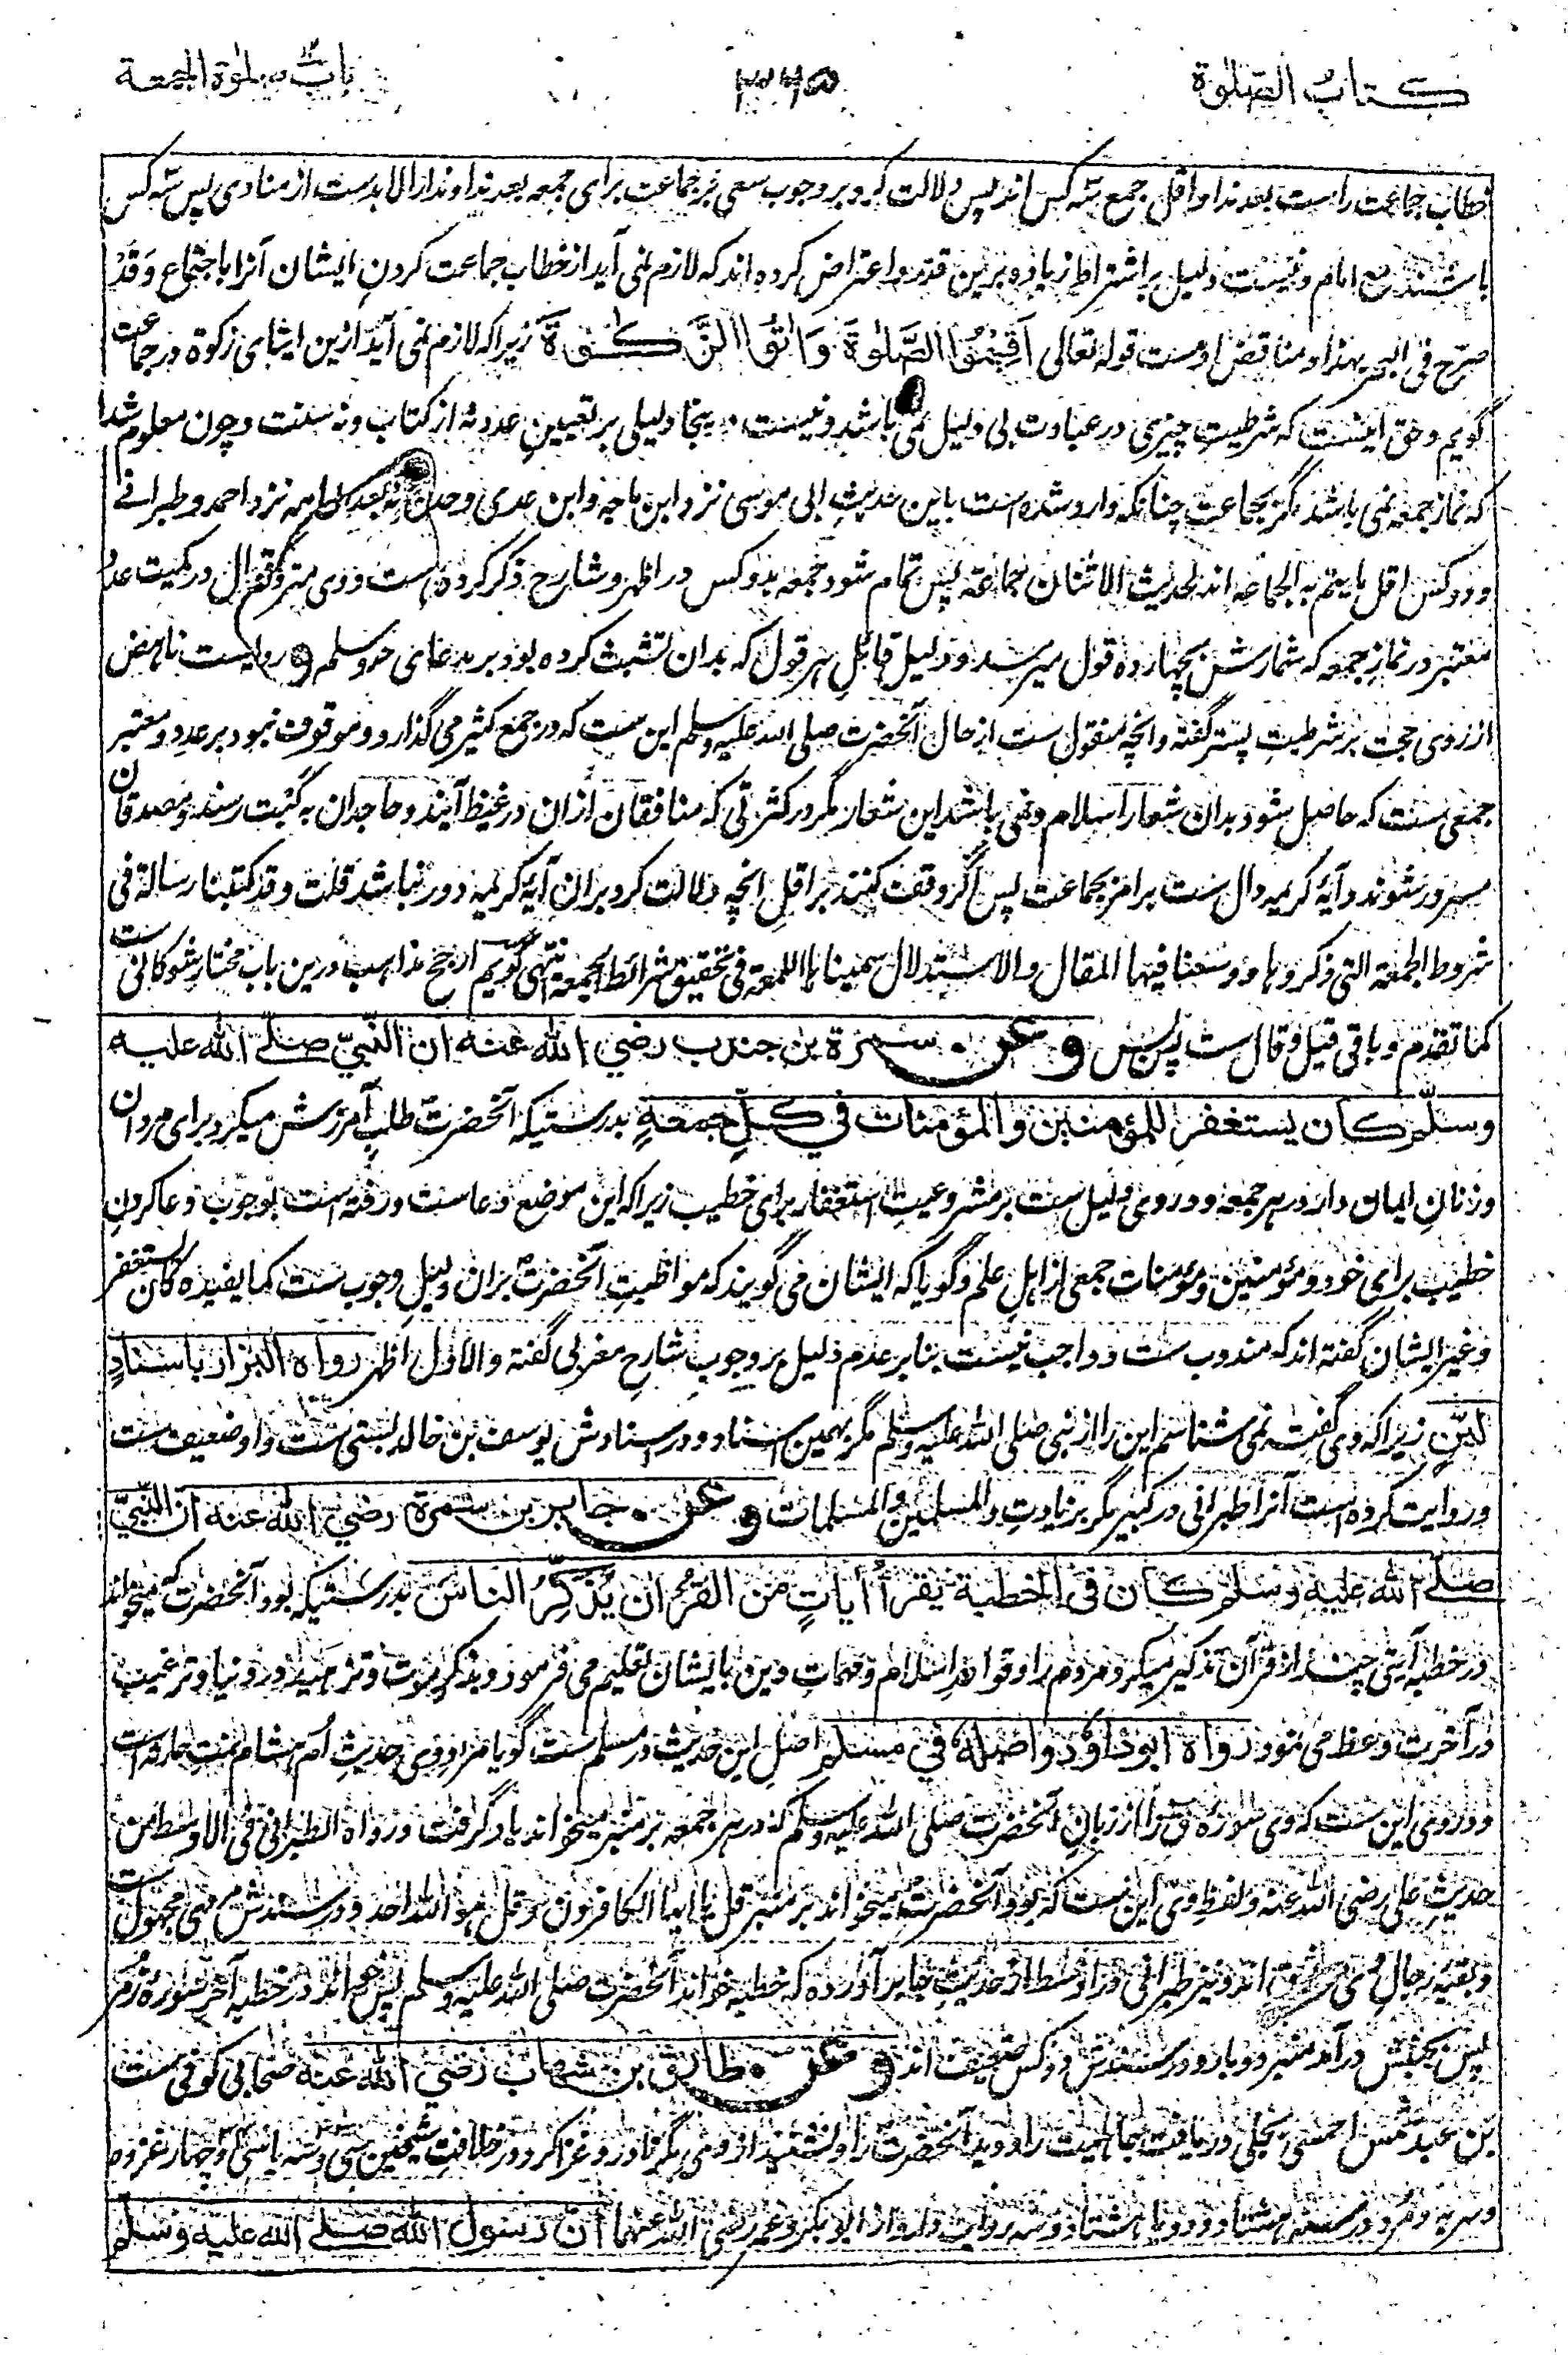 كتاب الصلوة
٣٦٥
باب صلوة الجمعة
خطاب جماعت راست بعد ندا و اقل جمع سه کس اند پس دلالت کرد بر وجوب سعی بر جماعت برای جمعه بعد ندا و ندا را لابدست از منادی پس سه کس
باشند مع امام و نیست دلیل بر اشتراط زیاده برین قدر و اعتراض کرده اند که لازم نمی آید از خطاب جماعت کردن ایشان آنرا باجتماع وَقَدْ
صرّح فی البحر بهذا و مناقض اوست قوله تعالی اَقِیْمُوا الصَّلٰوةَ وَاٰتُوا الزَّكٰوةَ زیرا که لازم نمی آید ازین ایتای زکوة در جماعت
گویم و حق اینست که شرطیت چیزی در عبادت بی دلیل نمی باشد و نیست درینجا دلیلی بر تعیین عدد نه از کتاب و نه سنت و چون معلوم شد
که نماز جمعه نمی باشد مگر بجماعت چنانکه وارد شده است باین حدیث ابی موسی نزد ابن ماجه و ابن عدی و حدیث ابو امامه نزد احمد و طبرانی
و دو کس اقل ما یتم به الجماعه اند لحدیث الاثنان جماعة پس تمام شود جمعه بدو کس در اظهر و شارح ذکر کرده است و وی سرد اقوال در کمیت عدد
معتبر در نماز جمعه که شمارش بچهارده قول میرسد و دلیل قائل هر قول که بدان تشبث کرده بود بر مدعای خود و سلم روایت ناهض
از روی حجت بر شرطیت پستر گفته وانچه منقول ست از حال آنحضرت صلی الله علیه وسلم این ست که در جمع کثیر می گذارد و موقوف نبود بر عدد و معتبر
جمعی ست که حاصل شود بدان شعار اسلام و نمی باشد این شعار مگر در کثرتی که منافقان ازان در غیظ آیند و جاحدان به کبت رسند و مصدقان
مسرور شوند و آیهٔ کریمه دال ست بر امر بجماعت پس اگر وقف کنند بر اقل انچه دلالت کرد بران آیهٔ کریمه دور نباشد قلت وقد کتبنا رسالة فی
شروط الجمعة التی ذکروها ووسعنا فیها المقال والاستدلال سمیناها اللمعة فی تحقیق شرائط الجمعة انتهی گویم ارجح مذاهب درین باب مختار شوکانی ست
کما تقدم و باقی قیل و قال ست پس پس وعن سمرة بن جندب رضي الله عنه ان النّبيّ صلّے الله عليه
وسلّم كان يستغفر للمؤمنين والمؤمنات في كلّ جمعةٍ بدرستیکه آنحضرت طلب آمرزش میکرد برای مردان
و زنان ایمان دار در هر جمعه و در وی دلیل ست بر مشروعیت استغفار برای خطیب زیرا که این موضع دعاست و رفته است بوجوب دعا کردن
خطیب برای خود و مؤمنین و مؤمنات جمعی از اهل علم و گویا که ایشان می گویند که مواظبت آنحضرت بران دلیل وجوب ست کما یفیده کان یستغفر
و غیر ایشان گفته اند که مندوب ست و واجب نیست بنابر عدم دلیل بر وجوب شارح مغربی گفته والاول اظهر رواه البزار باسنادٍ
ليّن زیرا که وی گفت نمی شناسم این را از نبی صلی الله علیه وسلم مگر بهمین اسناد و در اسنادش یوسف بن خالد بستی ست و او ضعیف ست
و روایت کرده است آنرا طبرانی در کبیر مگر بزیادت والمسلمین والمسلمات وعن جابر بن سمرة رضي الله عنه ان النّبيّ
صلّے الله عليه وسلم كان في الخطبة يقرأُ اٰياتٍ من القراٰن يُذكِّرُ الناسَ بدرستیکه بود آنحضرت که میخواند
در خطبه آیتی چند از قرآن تذکیر میکرد مردم را و قواعد اسلام و مهمات دین بایشان تعلیم می فرمود و بذکر موت و تزهید در دنیا و ترغیب
در آخرت وعظ می نمود رواه ابوداود واصله في مسلم اصل این حدیث در مسلم ست گویا مراد وی حدیث ام هشام بنت حارثه است
و در وی این ست که وی سورهٔ ق را از زبان آنحضرت صلی الله علیه وسلم که در هر جمعه بر منبر میخواند یاد گرفت ورواه الطبرانی فی الاوسط من
حدیث علی رضی الله عنه و لفظ وی این ست که بود آنحضرت میخواند بر منبر قل یا ایها الکافرون و قل هو الله احد و در سندش مردی مجهول ست
و بقیهٔ رجال وی موثق اند و نیز طبرانی در اوسط از حدیث جابر آورده که خطبه خواند آنحضرت صلی الله علیه وسلم پس خواند در خطبه آخر سورهٔ زمر
پس بجنبش در آمد منبر دو بار و در سندش دو کس ضعیف اند وعن طارق بن شهاب رضي الله عنه صحابی کوفی ست
بن عبد شمس احمسی بجلی دریافت جاهلیت را و دید آنحضرت را و نشنید از وی مگر نادر و غزا کرد در خلافت شیخین سی و سه یا سی و چهار غزوه
و سریه و مرد در سنه هشتاد و دو یا هشتاد و سه روایت دارد از ابوبکر و عمر رضی الله عنهما ان رسول الله صلے الله عليه وسلم